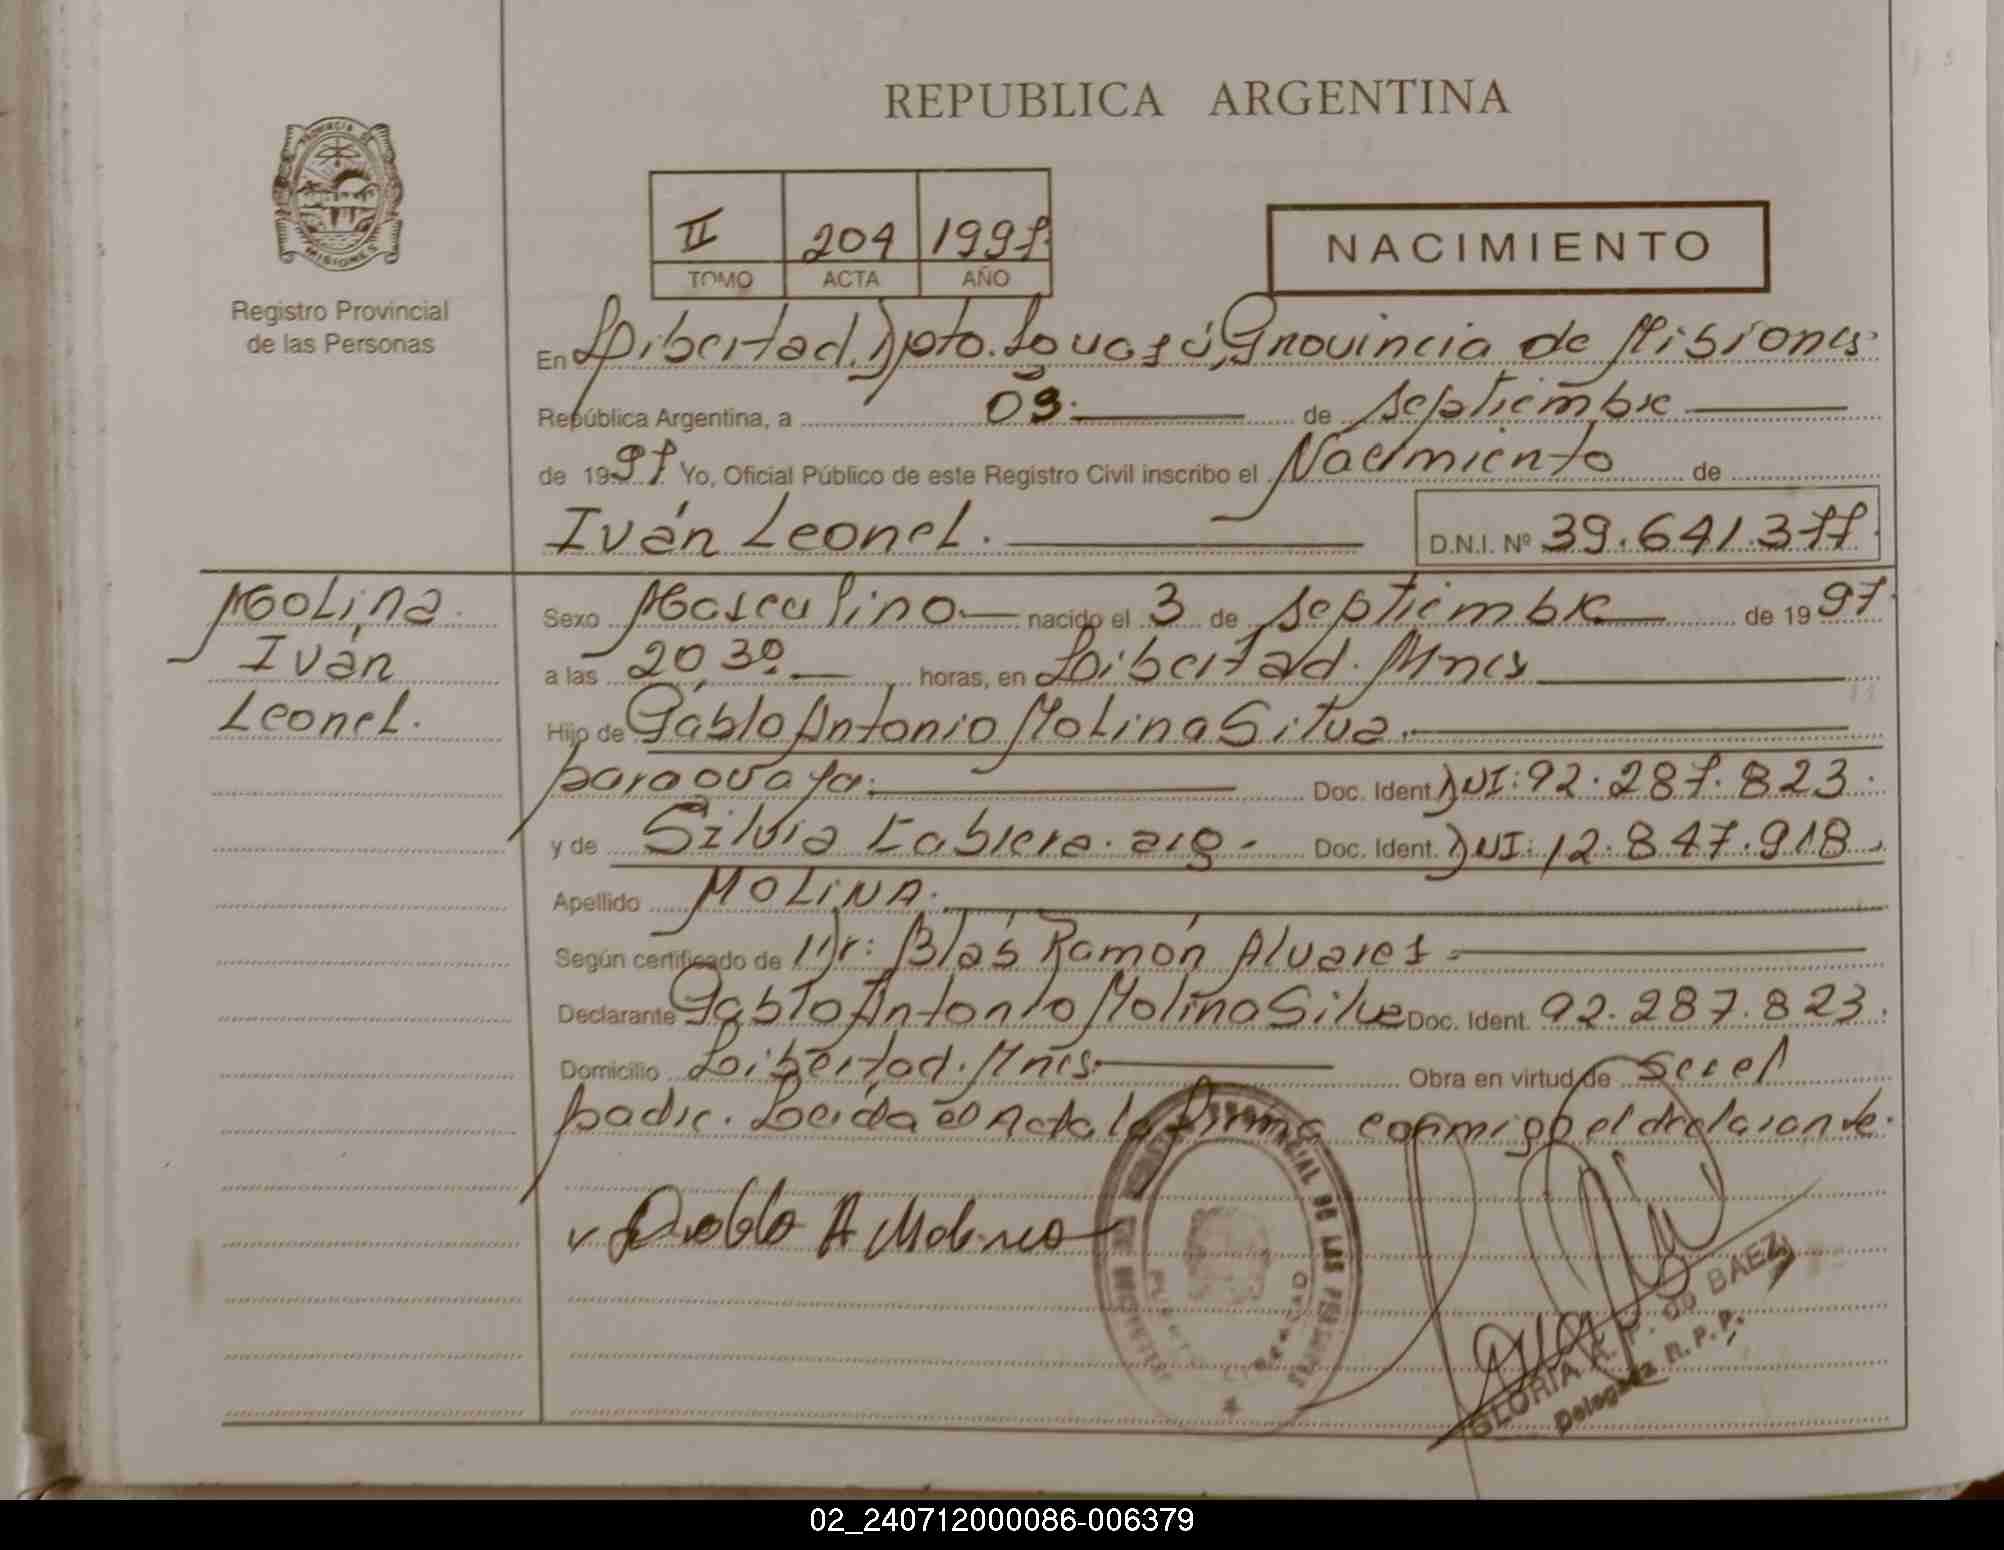 REPUBLICA ARGENTINA
PROVINCIA DE
MISIONES
Registro Provincial
de las Personas
II 204 1997
TOMO ACTA AÑO
NACIMIENTO
En Libertad. Dpto. Iguazú, Provincia de Misiones.
República Argentina, a 03. de septiembre
de 1997. Yo, Oficial Público de este Registro Civil inscribo el Nacimiento de
Iván Leonel. D.N.I. Nº 39.641.377.
Molina
Iván
Leonel.
Sexo Masculino nacido el 3 de septiembre de 1997.
a las 20,30 horas, en Libertad. Mnes
Hijo de Pablo Antonio Molina Silva.
paraguaya. Doc. Ident. DNI: 92.287.823.
y de Silvia Cabrera. arg. Doc. Ident. DNI: 12.847.918.
Apellido MOLINA.
Según certificado de Dr: Blás Ramón Alvares
Declarante Pablo Antonio Molina Silva Doc. Ident. 92.287.823.
Domicilio Libertad. Mnes. Obra en virtud de Ser el
padre. Leída el Acta la firma conmigo el declarante.
Pablo A Molina
PROVINCIAL DE LAS PERSONAS
GLORIA A. P. de BAEZ
Delegada R.P.P.
02_240712000086-006379